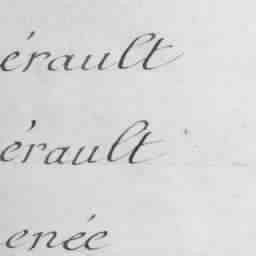 érault
érault
enée